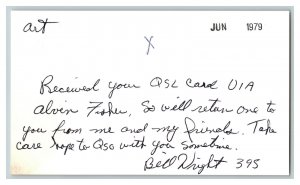 art
JUN 1979
X
Received your QSL Card VIA
Alvin Fisher, So will return one to
you from me and my friends. Take
care hope to QSO with you sometime.
Bill Wright 395